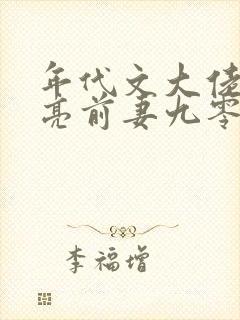 年代文大佬
亮前妻九零
李福增